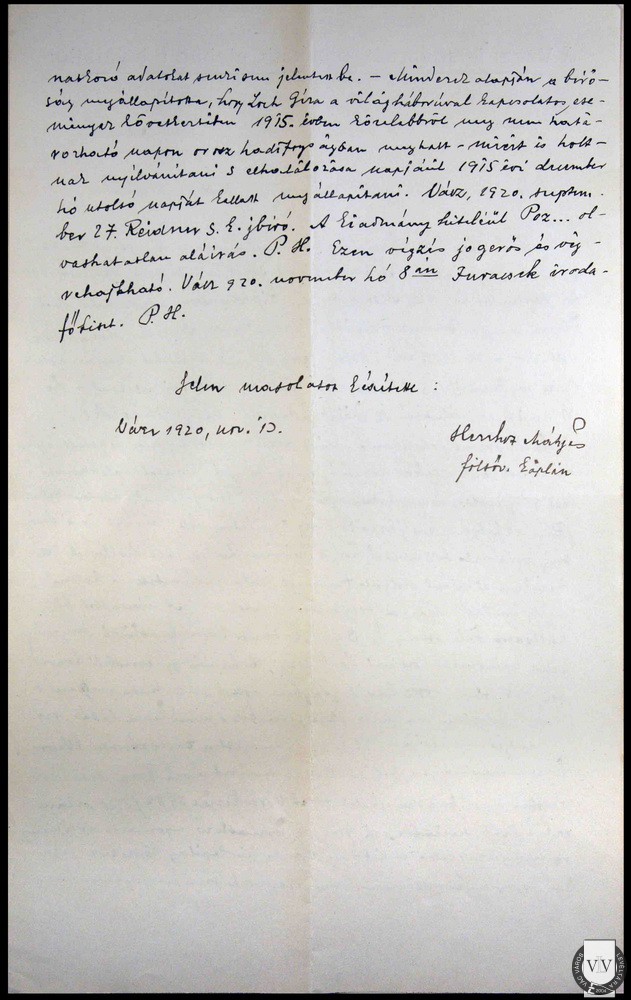 natkozó adatokat senki sem jelentett be. – Mindezek alapján a biró-
ság megállapitotta, hogy Loch Géza a világháborúval kapcsolatos ese-
mények következtében 1915. évben közelebbről meg nem hatá-
rozható napon orosz hadifogságban meghalt – miért is holt-
nak nyilvánitani s elhalálozása napjául 1915 évi december
hó utolsó napját kellett megállapitani. Vácz, 1920. septem-
ber 27. Reidner s. k. jbiró. A kiadmány hiteléül Poz... ol-
vashatatlan aláirás. P. H. Ezen végzés jogerős és vég-
rehajtható. Vácz 920. november hó 8án iroda-
főtiszt. P. H.
Jelen másolatot készitette:
Vácz 1920, nov. 13.
Mátyás
káplán
VÁC VÁROS LEVÉLTÁRA
VVL